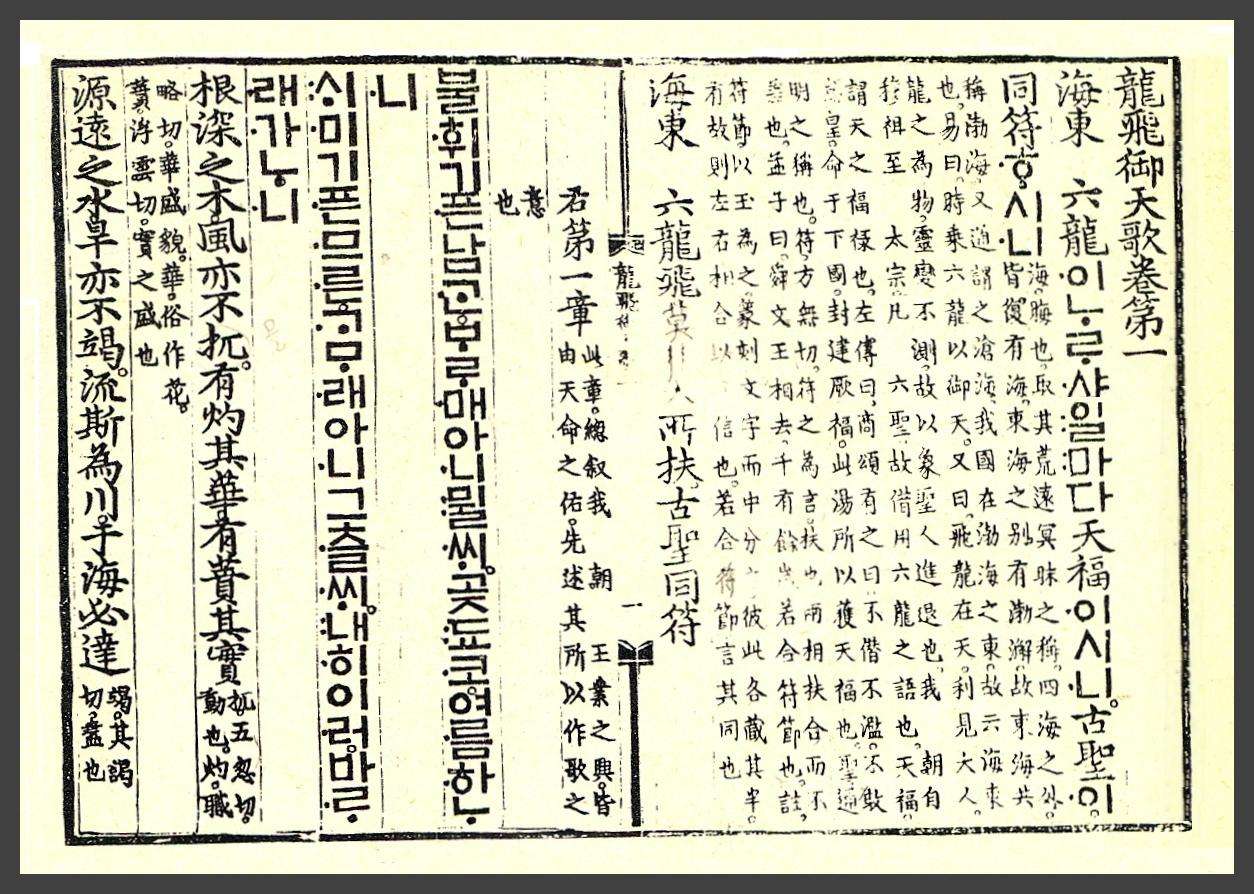 龍飛御天歌卷第一
海東 六龍이ᄂᆞᄅᆞ샤일마다天福이시니。古聖이
同符ᄒᆞ시니
海。晦也。取其荒遠冥昧之稱。四海之外。
皆復有海。東海之别有渤澥。故東海共
稱渤海。又通謂之滄海。我國在渤海之東。故云海東
也。易曰。時乘六龍以御天。又曰。飛龍在天。利見大人。
龍之為物。靈變不測。故以象聖人進退也。我 朝自
穆祖至 太宗。凡 六聖。故借用六龍之語也。天福。
謂天之福祿也。左傳曰。商頌有之曰。不僭不濫。不敢
怠皇。命于下國。封建厥福。此湯所以獲天福也。聖。通
明之稱也。符。方無切。符之為言。扶也。兩相扶合而不
差也。孟子曰。舜文王相去。千有餘歲。若合符節也。註。
符節。以玉為之。篆刻文字。而中分之。彼此各藏其半。
有故則左右相合以信也。若合符節。言其同也
海東 六龍飛。莫所扶。古聖同符
龍飛
一
右第一章
此章。總叙我 朝 王業之興。皆
由天命之佑。先述其所以作歌之
意
也
불휘기픈남ᄀᆞᆫᄇᆞᄅᆞ매아니뮐ᄊᆡ。곶됴코。여름하ᄂᆞ
니
ᄉᆡ미기픈므른ᄀᆞᄆᆞ래아니그츨ᄊᆡ。내히이러。바ᄅᆞ
래가ᄂᆞ니
根深之木。風亦不扤。有灼其華。有蕡其實
扤。五忽切。
動也。灼。職
略切。華盛貌。華。俗作花。
蕡。浮雲切。實之盛也
源遠之水。旱亦不竭。流斯為川。于海必達
竭。其謁
切。盡也